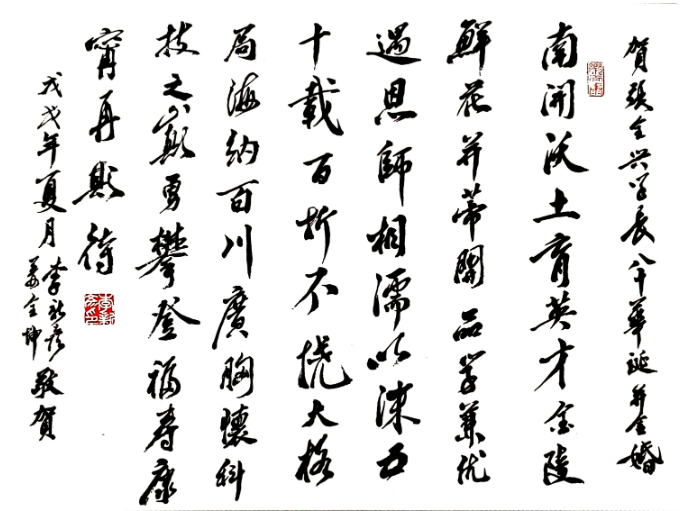 賀張全兴学長八十華诞并金婚
南開沃土育英才金陵
鮮花并蒂開品学兼优
遇恩師相濡以沫五
十載百折不撓大格
局海納百川廣胸懷科
技之巔勇攀登福寿康
甯再期待
戊戌年夏月 李新 姜全坤 敬賀